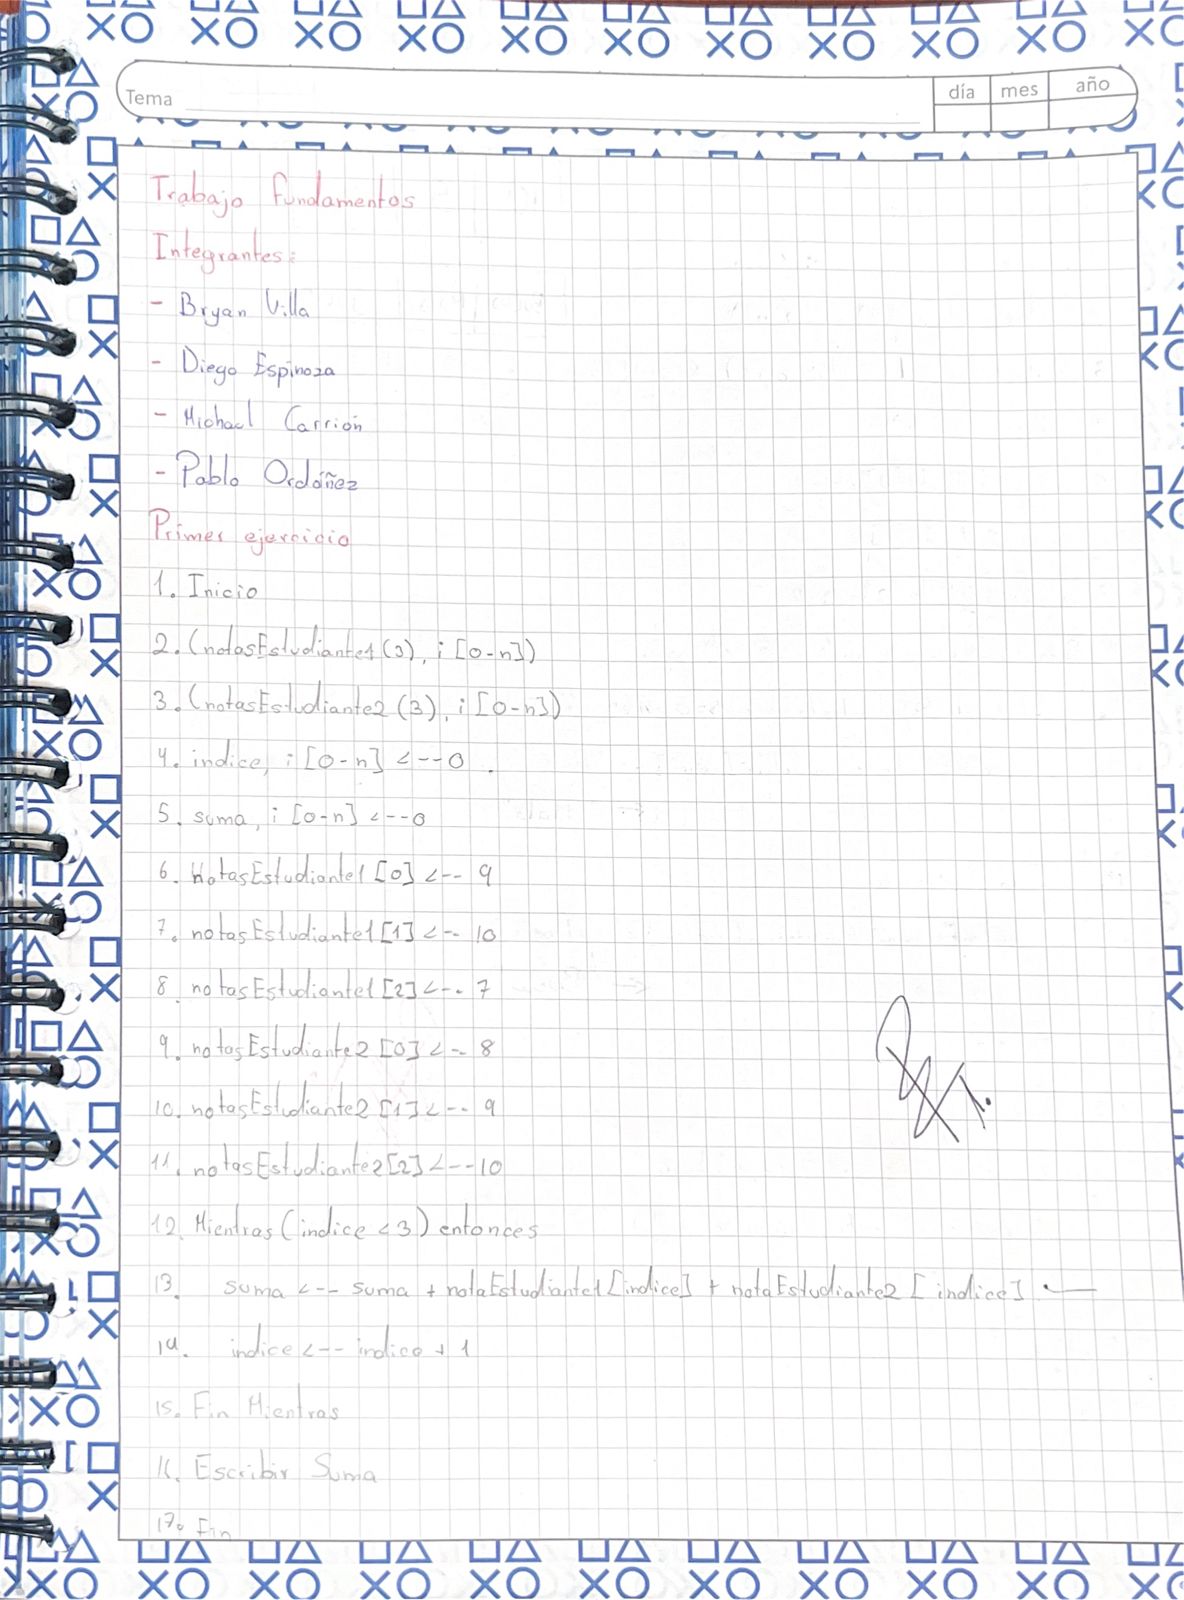 Tema
día mes año
Trabajo fundamentos
Integrantes:
- Bryan Villa
- Diego Espinoza
- Michael Carrión
- Pablo Ordóñez
Primer ejercicio
1. Inicio
2. (notasEstudiante1 (3), i [0-n])
3. (notasEstudiante2 (3), i [0-n])
4. indice, i [0-n] <--0
5. suma, i [0-n] <--0
6. notasEstudiante1 [0] <-- 9
7. notasEstudiante1 [1] <-- 10
8. notasEstudiante1 [2] <-- 7
9. notasEstudiante2 [0] <-- 8
10. notasEstudiante2 [1] <-- 9
11. notasEstudiante2 [2] <--10
12. Mientras (indice <3) entonces
13. suma <-- suma + notaEstudiante1 [indice] + notaEstudiante2 [indice]
14. indice <-- indice + 1
15. Fin Mientras
16. Escribir Suma
17. Fin